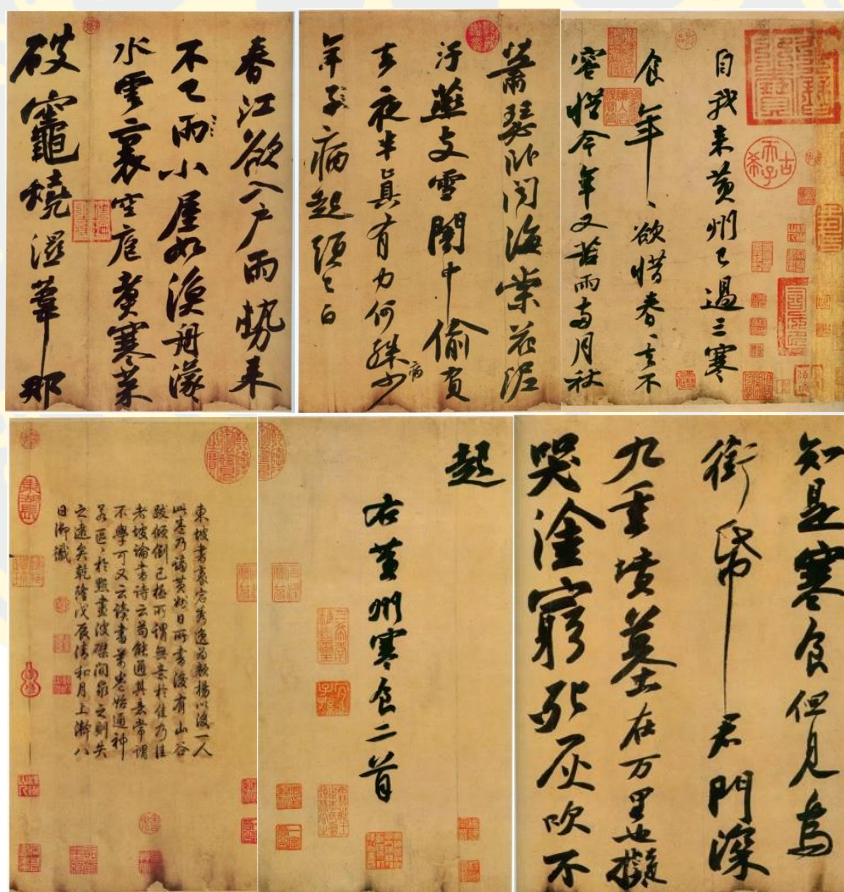 自我来黄州已過三寒
食年、欲惜春、去不
容惜今年又苦雨兩月秋
蕭瑟卧聞海棠花泥
汙燕支雪闇中偷負
去夜半真有力何殊少病
年子病起頭已白
春江欲入户雨勢来
不已雨小屋如漁舟濛
水雲裏空庖煮寒菜
破竈燒濕葦那
知是寒食但見烏
銜帋君門深
九重墳墓在万里也擬
哭塗窮死灰吹不
起
右黄州寒食二首
東坡書豪宕秀逸為顏楊以後一人
此卷乃謫黄州日所書後有山谷
跋傾倒已極所謂無意於佳乃佳
者坡論書詩云苟能通其意常謂
不學可又云讀書萬卷始通神
若區、於點畫波磔間求之則失
之遠矣乾隆戊辰清和月上澣八
日御識
古希天子